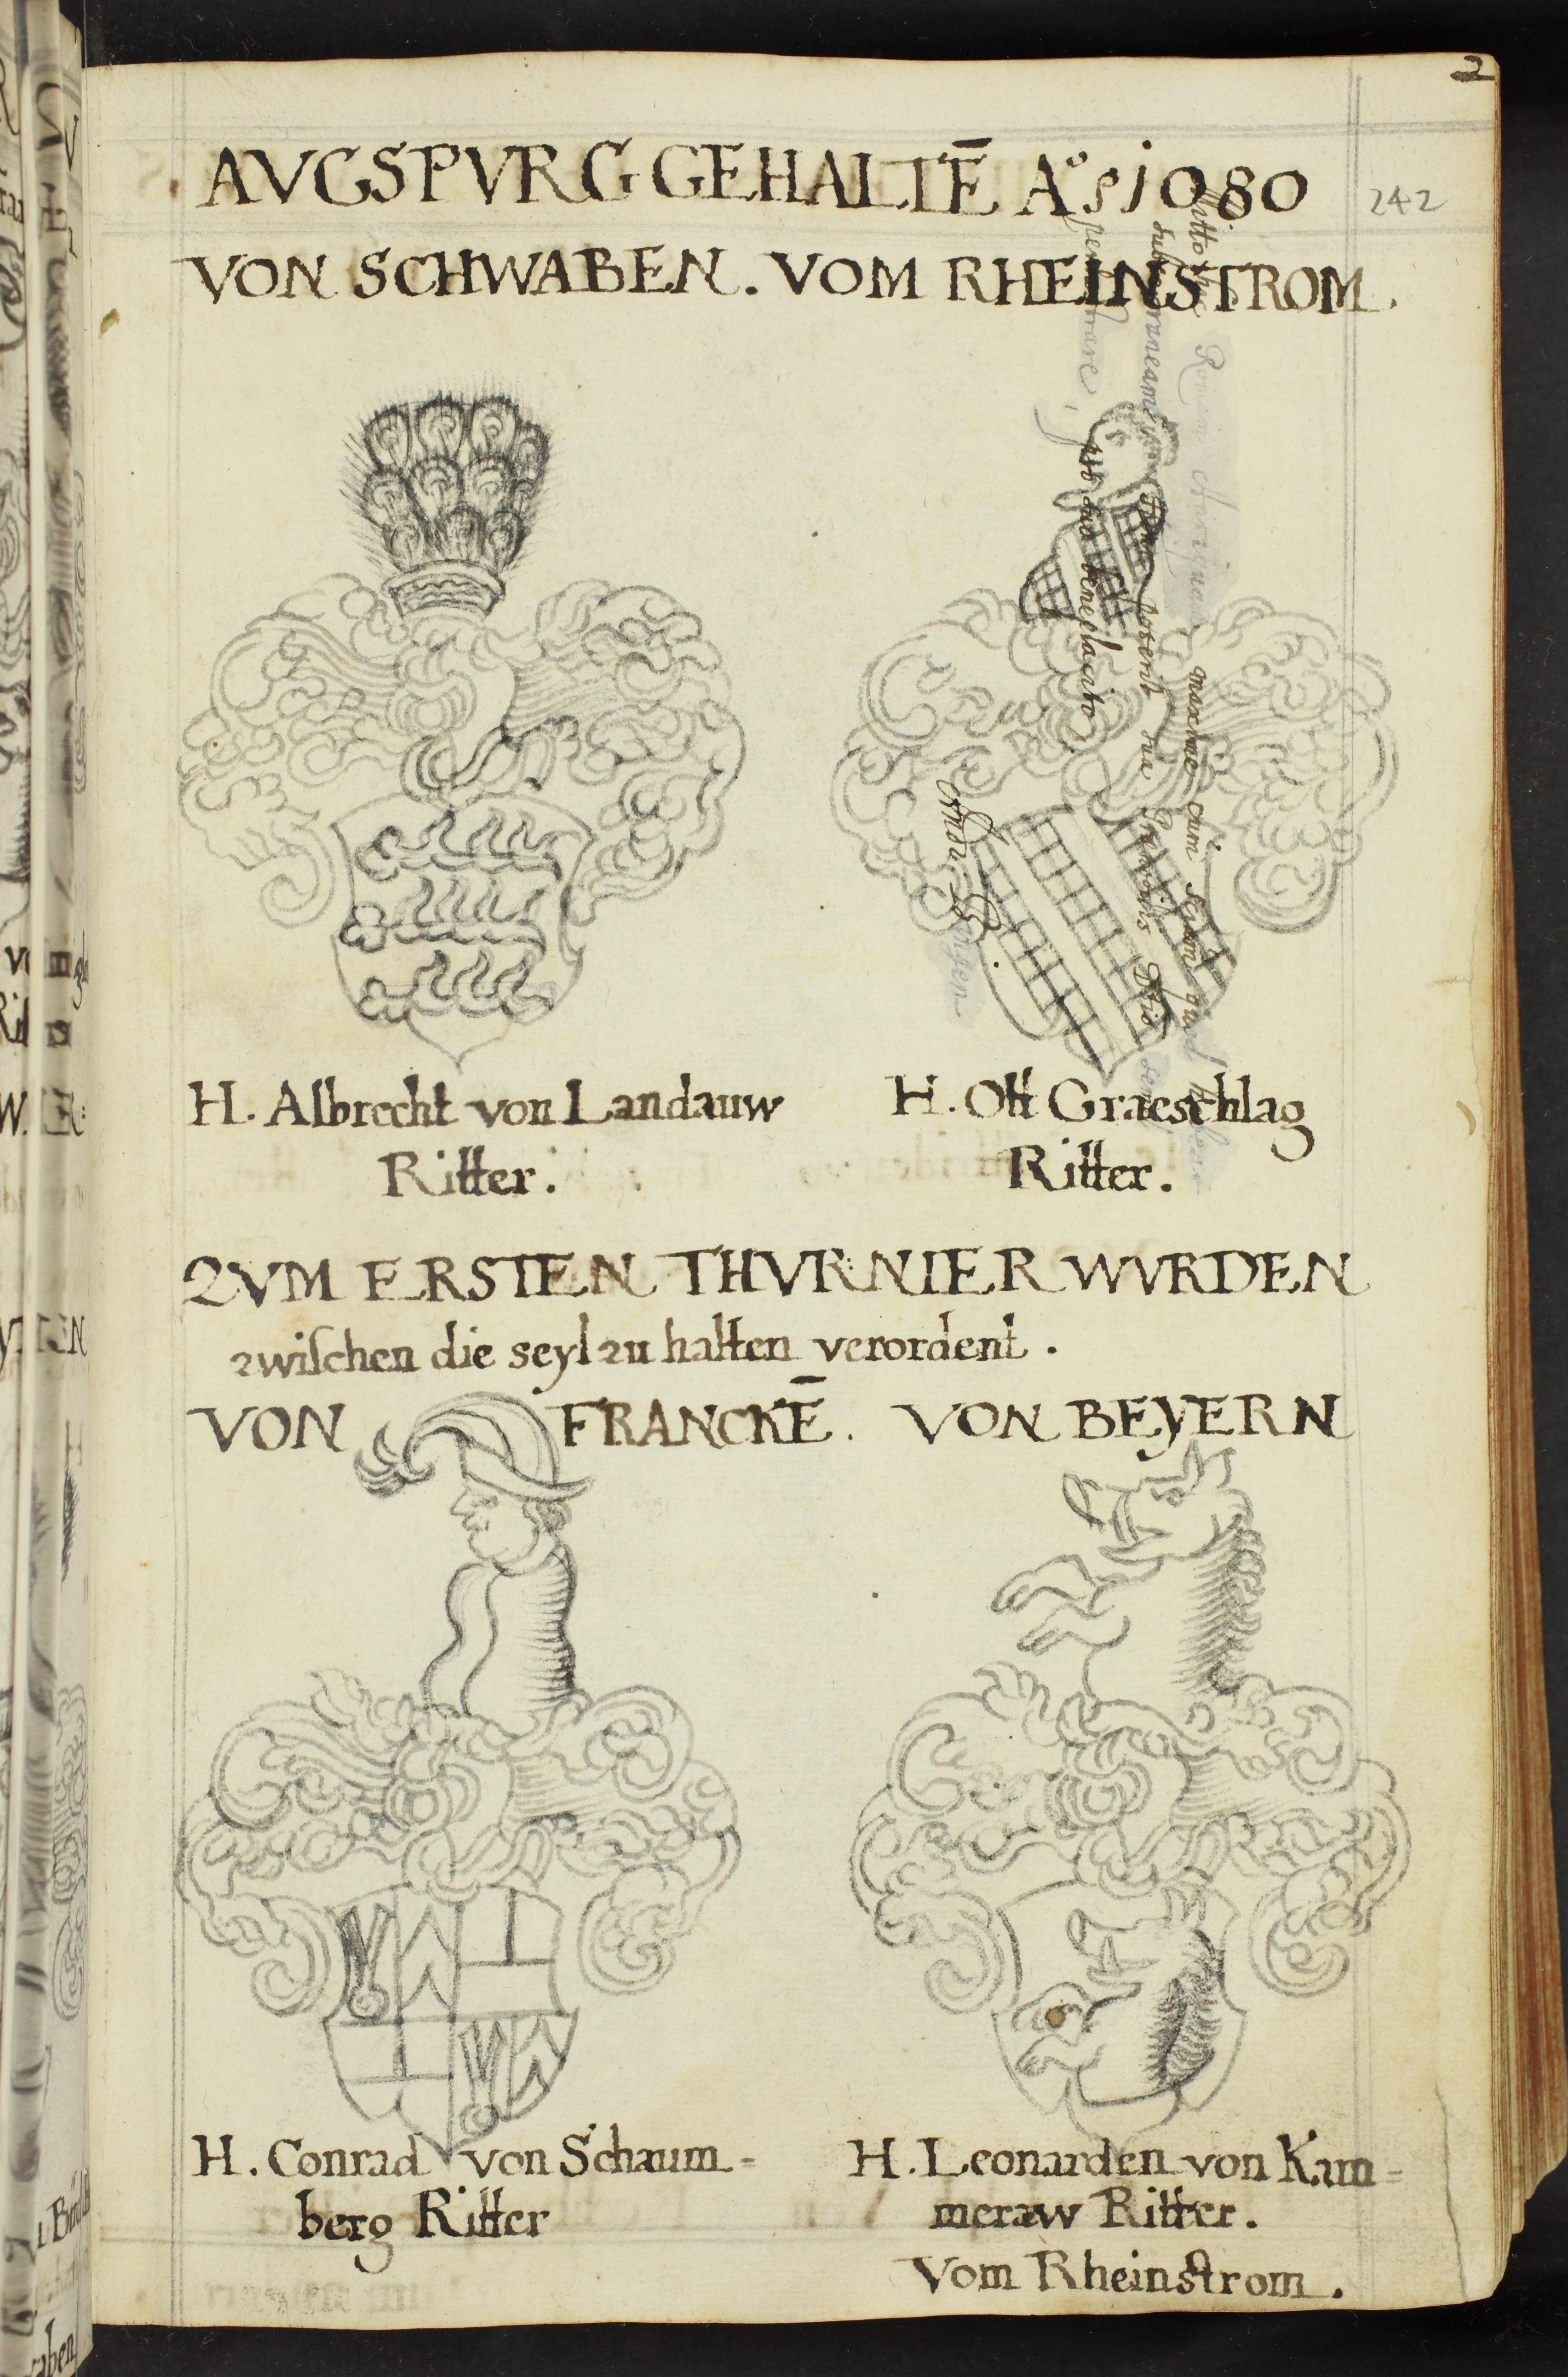 2
AVGSPVRG GEHALTĒ Aº 1080
242
VON SCHWABEN. VOM RHEINSTROM.
H. Albrecht von Landauw
Ritter.
H. Ott Graeschlag
Ritter.
ZVM ERSTEN THVRNIER WVRDEN
zwiſchen die seyl zu halten verordent.
VON FRANCKĒ. VON BEYERN
H. Conrad von Schaum=
berg Ritter
H. Leonarden von Kam=
meraw Ritter.
Vom Rheinstrom.
maxime cum
sua
pro suo beneplacito